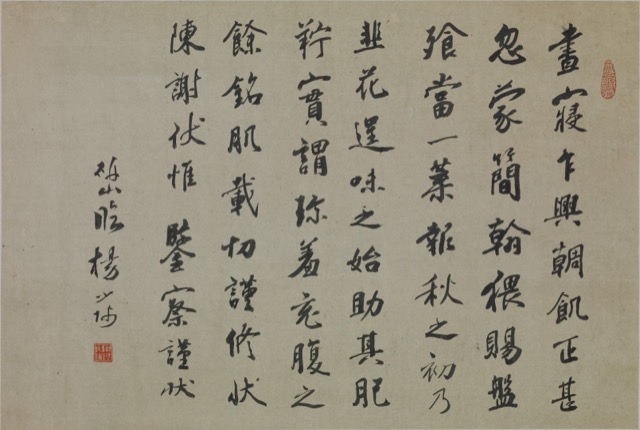 晝寢乍興輖飢正甚
忽蒙簡翰猥賜盤
飧當一葉報秋之初乃
韭花逞味之始助其肥
羜實謂珍羞充腹之
餘銘肌載切謹修狀
陳謝伏惟鑒察謹狀
臨楊少師